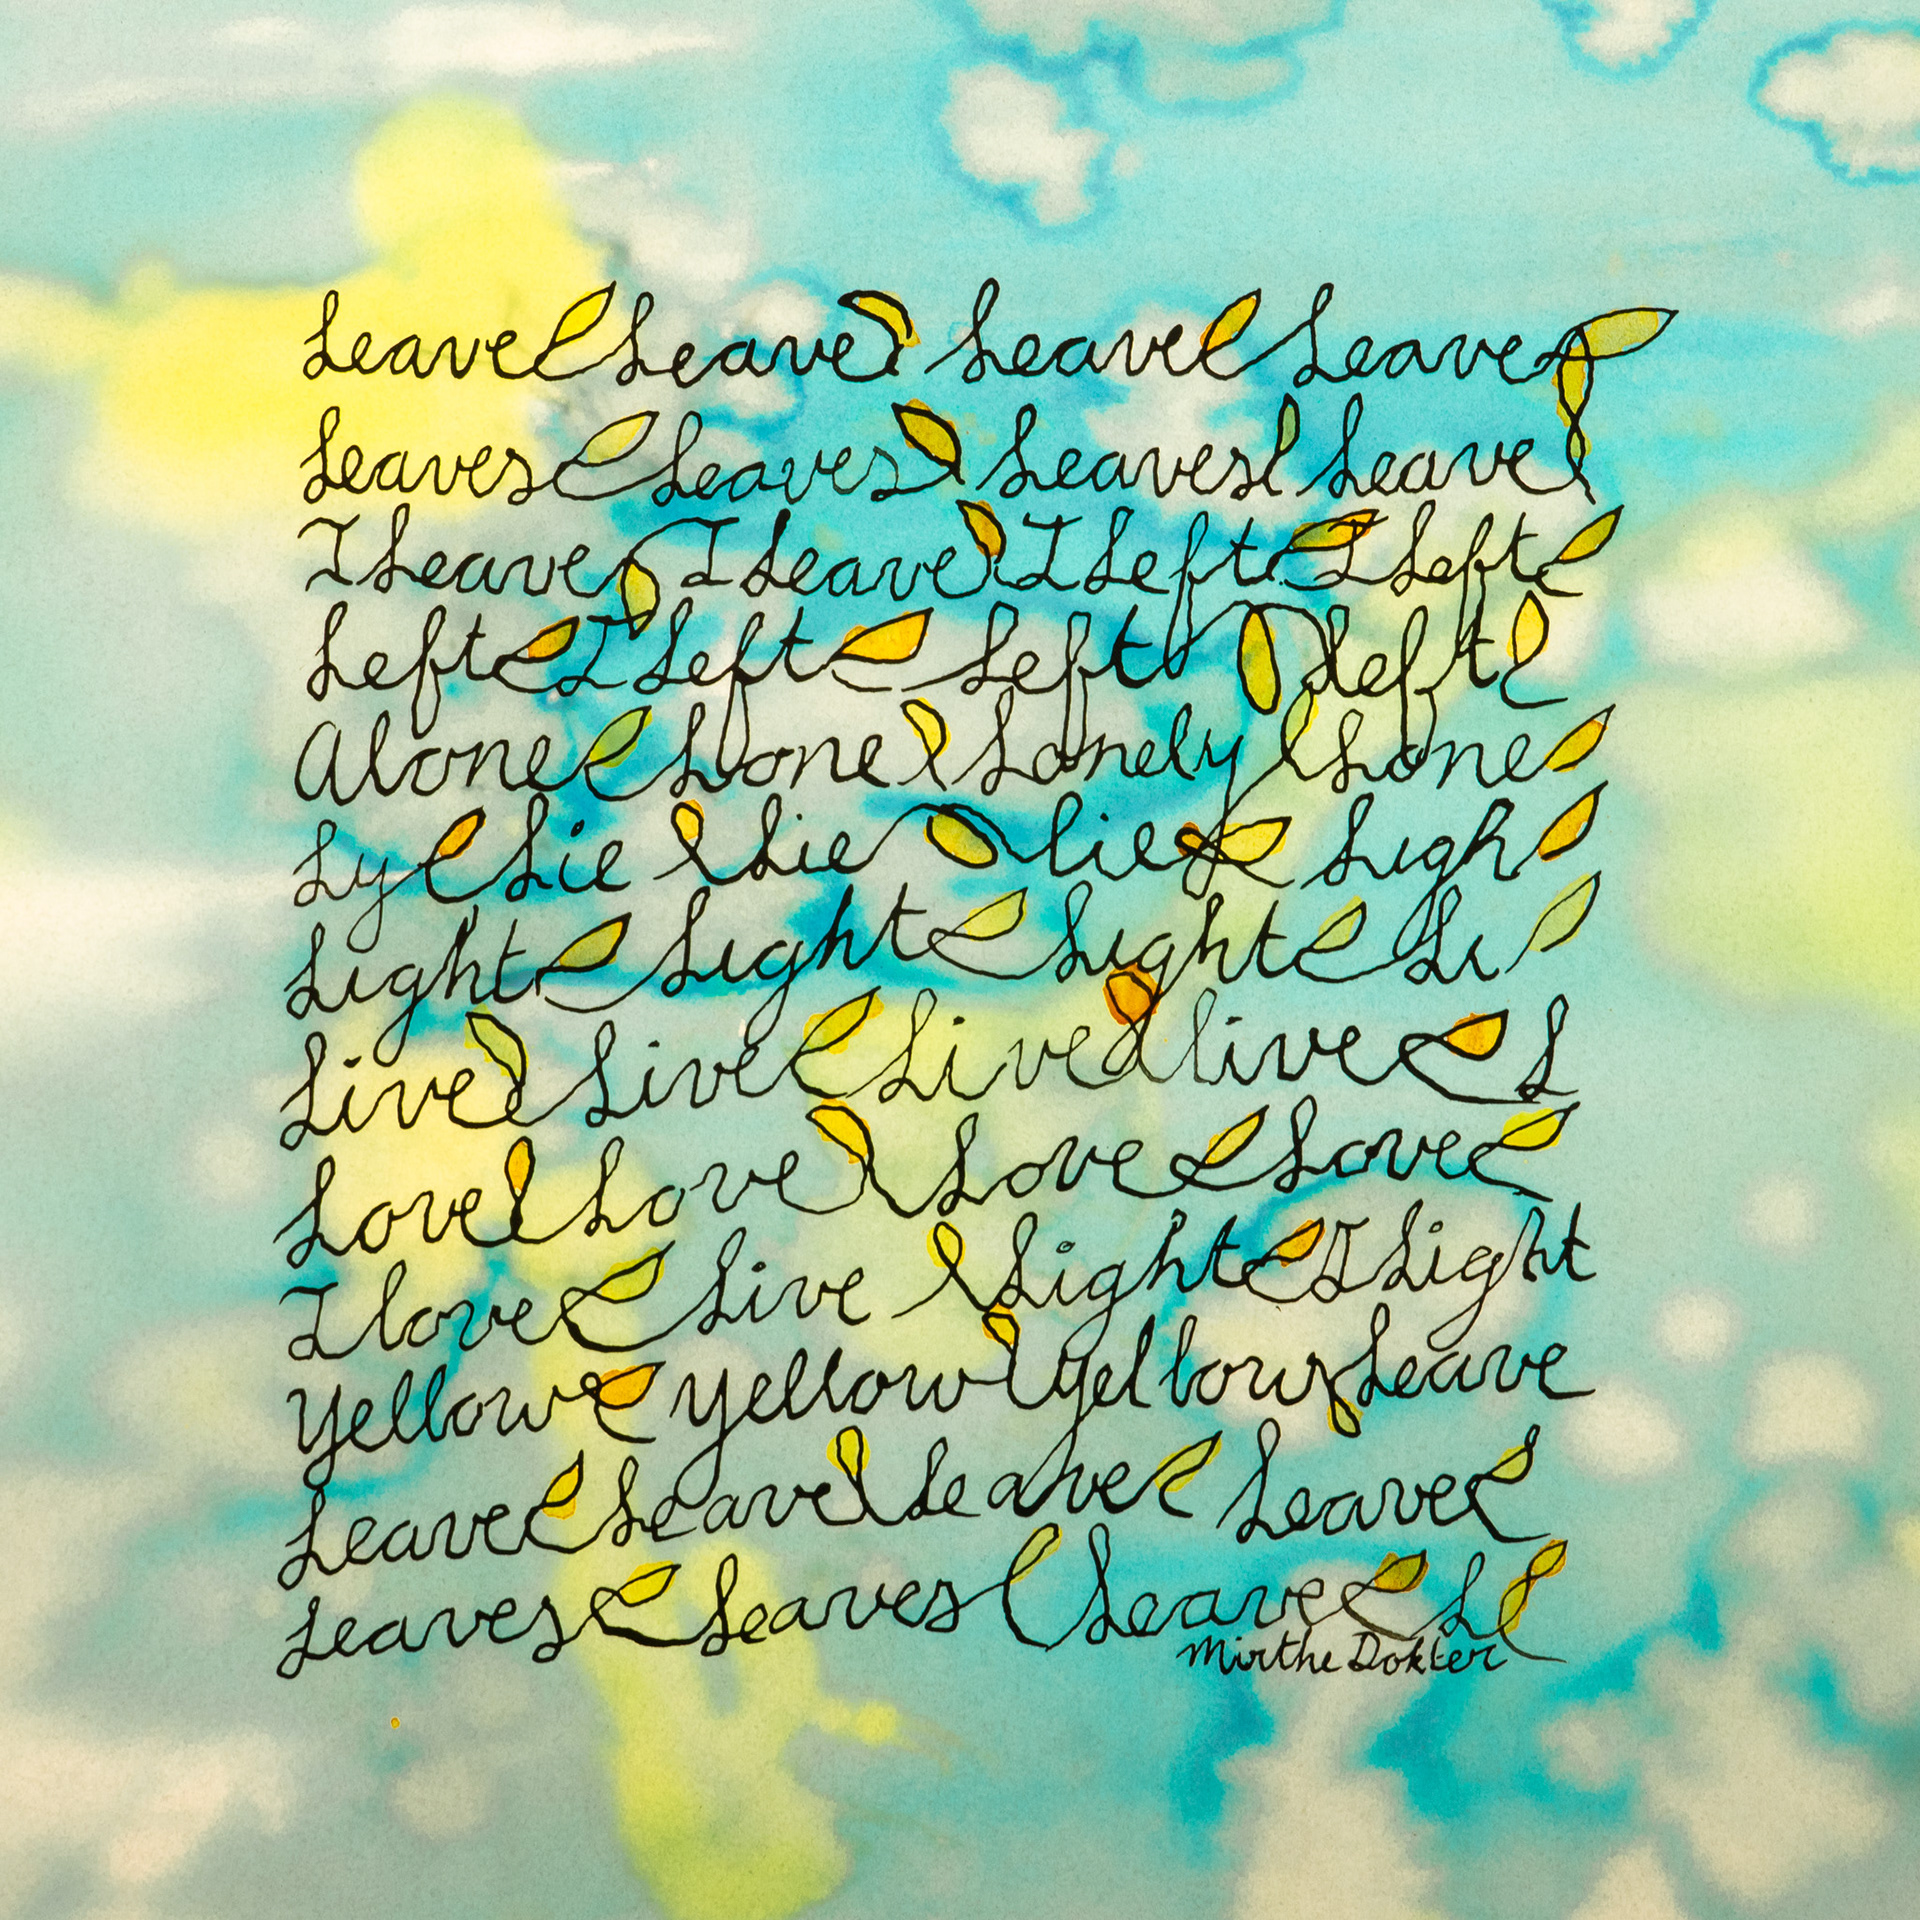 Leave Leave Leave Leave
Leaves Leaves Leaves Leave
I Leave I Leave I Left I Left
Left I Left Left left
Alone Lone Lonely Lone
Ly Lie Lie lie Ligh
Light Light Light Li
Live Live Live live L
Love Love Love Love
I love Live Light I Light
Yellow Yellow Yellow Leave
Leave Leave Leave Leave
Leaves Leaves Leave L
Mirthe Dokter